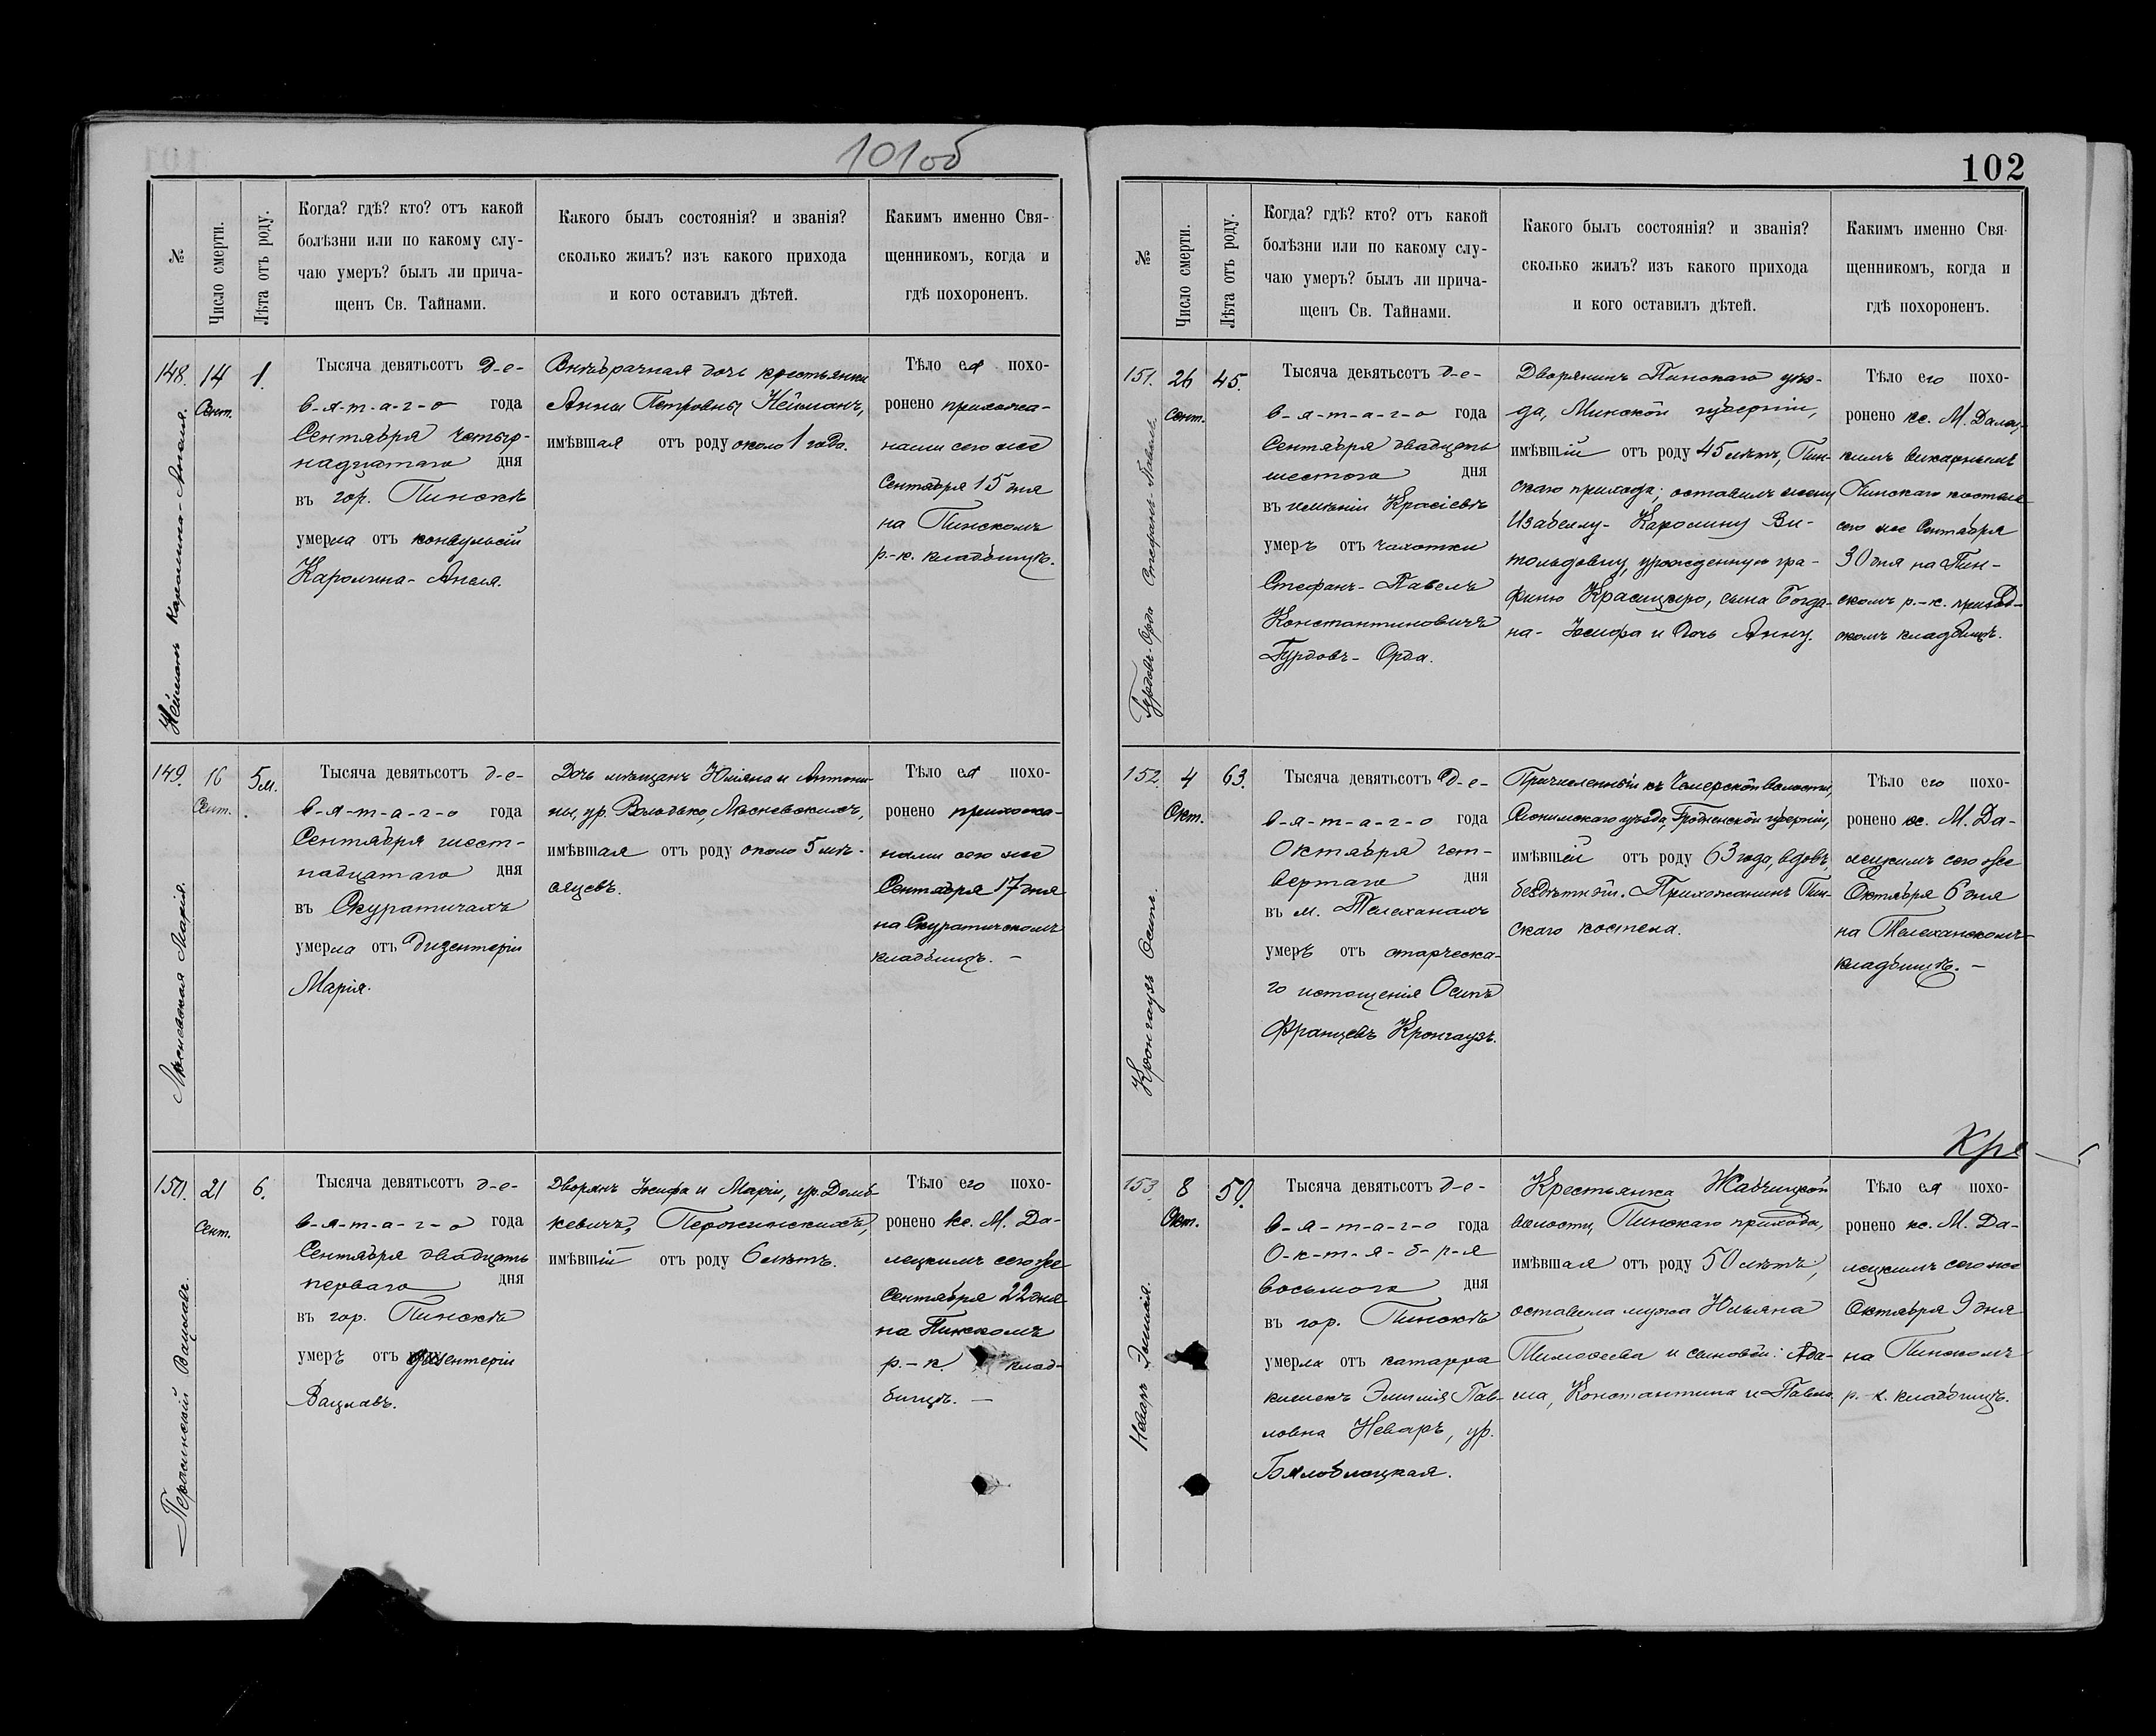 101об
№
Число смерти.
Лѣта отъ роду.
Когда? гдѣ? кто? отъ какой
болѣзни или по какому слу-
чаю умеръ? былъ ли прича-
щенъ Св. Тайнами.
Какого былъ состоянія? и званія?
сколько жилъ? изъ какого прихода
и кого оставилъ дѣтей.
Какимъ именно Свя-
щенникомъ, когда и
гдѣ похороненъ.
148.
14
Сент.
1.
Нейманъ Каролина-Анеля.
Тысяча девятьсотъ д-е-
в-я-т-а-г-о года
Сентября четыр-
надцатаго дня
въ гор. Пинскѣ
умерла отъ конвульсій
Каролина-Анеля.
Внѣбрачная дочь крестьянки
Анны Петровны Нейманъ,
имѣвшая отъ роду около 1 года.
Тѣло ея похо-
ронено прихожа-
нами сего же
Сентября 15 дня
на Пинскомъ
р.-к. кладбищѣ.
149.
16
Сент.
5 м.
Марія.
Тысяча девятьсотъ д-е-
в-я-т-а-г-о года
Сентября шест-
надцатаго дня
въ Скуратичахъ
умерла отъ дизентеріи
Марія.
Дочь мѣщанъ Юліяна и Антони-
ны, ур. Володько,
имѣвшая отъ роду около 5 мѣ-
сяцевъ.
Тѣло ея похо-
ронено прихожа-
нами сего же
Сентября 17 дня
на Скуратичскомъ
кладбищѣ. —
150.
21
Сент.
6.
Перожинскій Вацлавъ.
Тысяча девятьсотъ д-е-
в-я-т-а-г-о года
Сентября двадцать
перваго дня
въ гор. Пинскѣ
умеръ отъ дизентеріи
Вацлавъ.
Дворянъ Іосифа и Маріи, ур. Домѣ-
кевичъ, Перожинскихъ,
имѣвшій отъ роду 6 лѣтъ.
Тѣло его похо-
ронено кс. М. Да-
лецкимъ сего же
Сентября 22 дня
на Пинскомъ
р.-к. клад-
бищѣ. —
102
№
Число смерти.
Лѣта отъ роду.
Когда? гдѣ? кто? отъ какой
болѣзни или по какому слу-
чаю умеръ? былъ ли прича-
щенъ Св. Тайнами.
Какого былъ состоянія? и званія?
сколько жилъ? изъ какого прихода
и кого оставилъ дѣтей.
Какимъ именно Свя-
щенникомъ, когда и
гдѣ похороненъ.
151.
26
Сент.
45.
Гурдовъ-Орда Стефанъ-Павелъ.
Тысяча девятьсотъ д-е-
в-я-т-а-г-о года
Сентября двадцать
шестого дня
въ имѣніи Красіевѣ
умеръ отъ чахотки
Стефанъ-Павелъ
Константиновичъ
Гурдовъ-Орда.
Дворянинъ Пинскаго уѣз-
да, Минской губерніи,
имѣвшій отъ роду 45 лѣтъ, Пин-
скаго прихода; оставилъ жену
Изабеллу-Каролину Ви-
тольдовну, урожденную гра-
финю Красицкую, сына Богда-
на-Іосифа и дочь Анну.
Тѣло его похо-
ронено кс. М. Далец-
кимъ викарнымъ
Пинскаго костела
сего же Сентября
30 дня на Пин-
скомъ р.-к. приход-
скомъ кладбищѣ.
152.
4
Окт.
63.
Кронгаузъ Осипъ.
Тысяча девятьсотъ д-е-
в-я-т-а-г-о года
Октября чет-
вертаго дня
въ м. Телеханахъ
умеръ отъ старческа-
го истощенія Осипъ
Францевъ Кронгаузъ.
Причисленный къ Чемерской волости,
Слонимскаго уѣзда, Гродненской губерніи,
имѣвшій отъ роду 63 года, вдовъ,
бездѣтный. Прихожанинъ Пин-
скаго костела.
Тѣло его похо-
ронено кс. М. Да-
лецкимъ сего же
Октября 6 дня
на Телеханскомъ
кладбищѣ. —
Кре
153.
8
Окт.
50.
Неваръ Эмилія.
Тысяча девятьсотъ д-е-
в-я-т-а-г-о года
О-к-т-я-б-р-я
восьмого дня
въ гор. Пинскѣ
умерла отъ катарра
кишекъ Эмилія Пав-
ловна Неваръ, ур.
Бялоблоцкая.
Крестьянка Жабчицкой
волости, Пинскаго прихода,
имѣвшая отъ роду 50 лѣтъ,
оставила мужа Юльяна
Тимофеева и сыновей: Ада-
ма, Константина и Павла.
Тѣло ея похо-
ронено кс. М. Да-
лецкимъ сего же
Октября 9 дня
на Пинскомъ
р.-к. кладбищѣ.